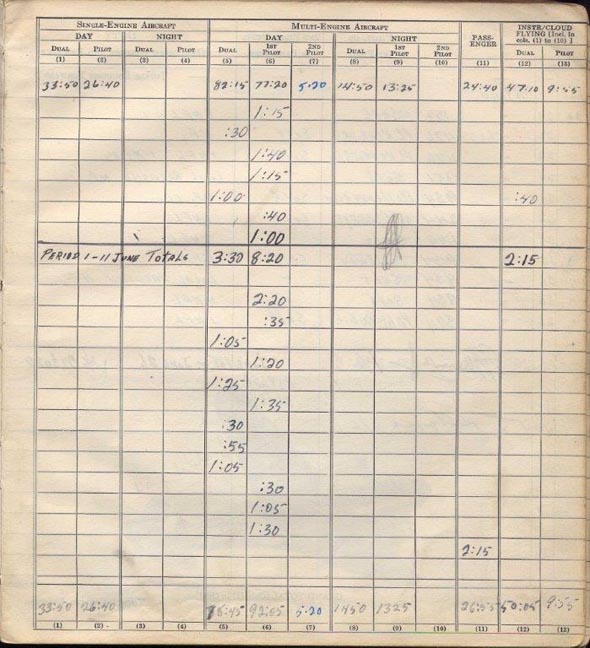 SINGLE-ENGINE AIRCRAFT MULTI-ENGINE AIRCRAFT PASS-ENGER INSTR/CLOUD FLYING [Incl. in cols. (1) to (10) ]
DAY NIGHT DAY NIGHT
DUAL PILOT DUAL PILOT DUAL 1ST PILOT 2ND PILOT DUAL 1ST PILOT 2ND PILOT DUAL PILOT
(1) (2) (3) (4) (5) (6) (7) (8) (9) (10) (11) (12) (13)
33:50 26:40 82:15 77:20 5:20 14:50 13:25 24:40 47:10 9:55
1:15
:30
1:40
1:15
1:00 :40
:40
1:00
PERIOD 1-11 JUNE TOTALS 3:30 8:20 2:15
2:20
:35
1:05
1:20
1:25
1:35
:30
:55
1:05
:30
1:05
1:30
2:15
33:50 26:40 92:05 5:20 1450 1325 26:55 50:05 9:55
(1) (2) (3) (4) (5) (6) (7) (8) (9) (10) (11) (12) (13)